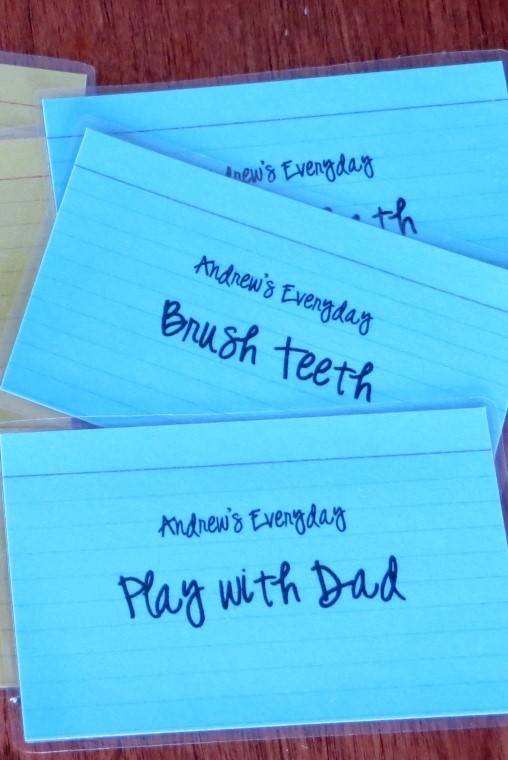 Everyday
Andrew's Everyday
Brush teeth
Andrew's Everyday
Play with Dad